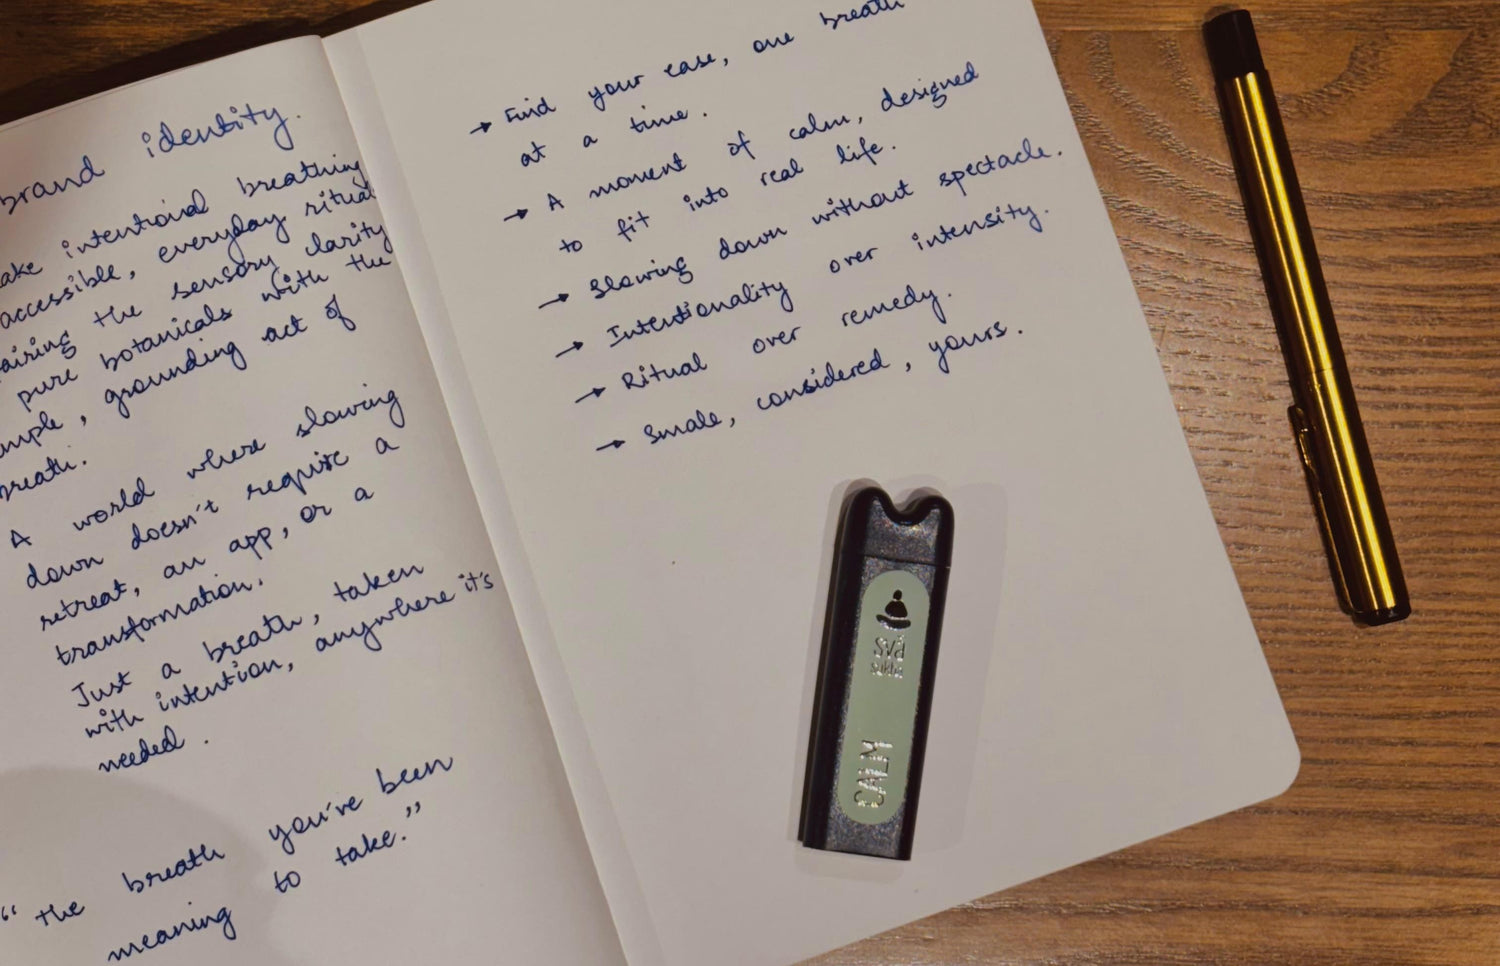 brand identity.
intentional breathing
accessible, everyday ritual
the sensory clarity
pure botanicals with the
grounding act of
A world where slowing
down doesn't require a
retreat, an app, or a
transformation.
Just a breath, taken
with intention, anywhere it's
needed.
"the breath you've been
meaning to take."
→ Find your ease, one breath
at a time.
→ A moment of calm, designed
to fit into real life.
→ Slowing down without spectacle.
→ Intentionality over intensity.
→ Ritual over remedy.
→ Small, considered, yours.
sva
sukha
CALM